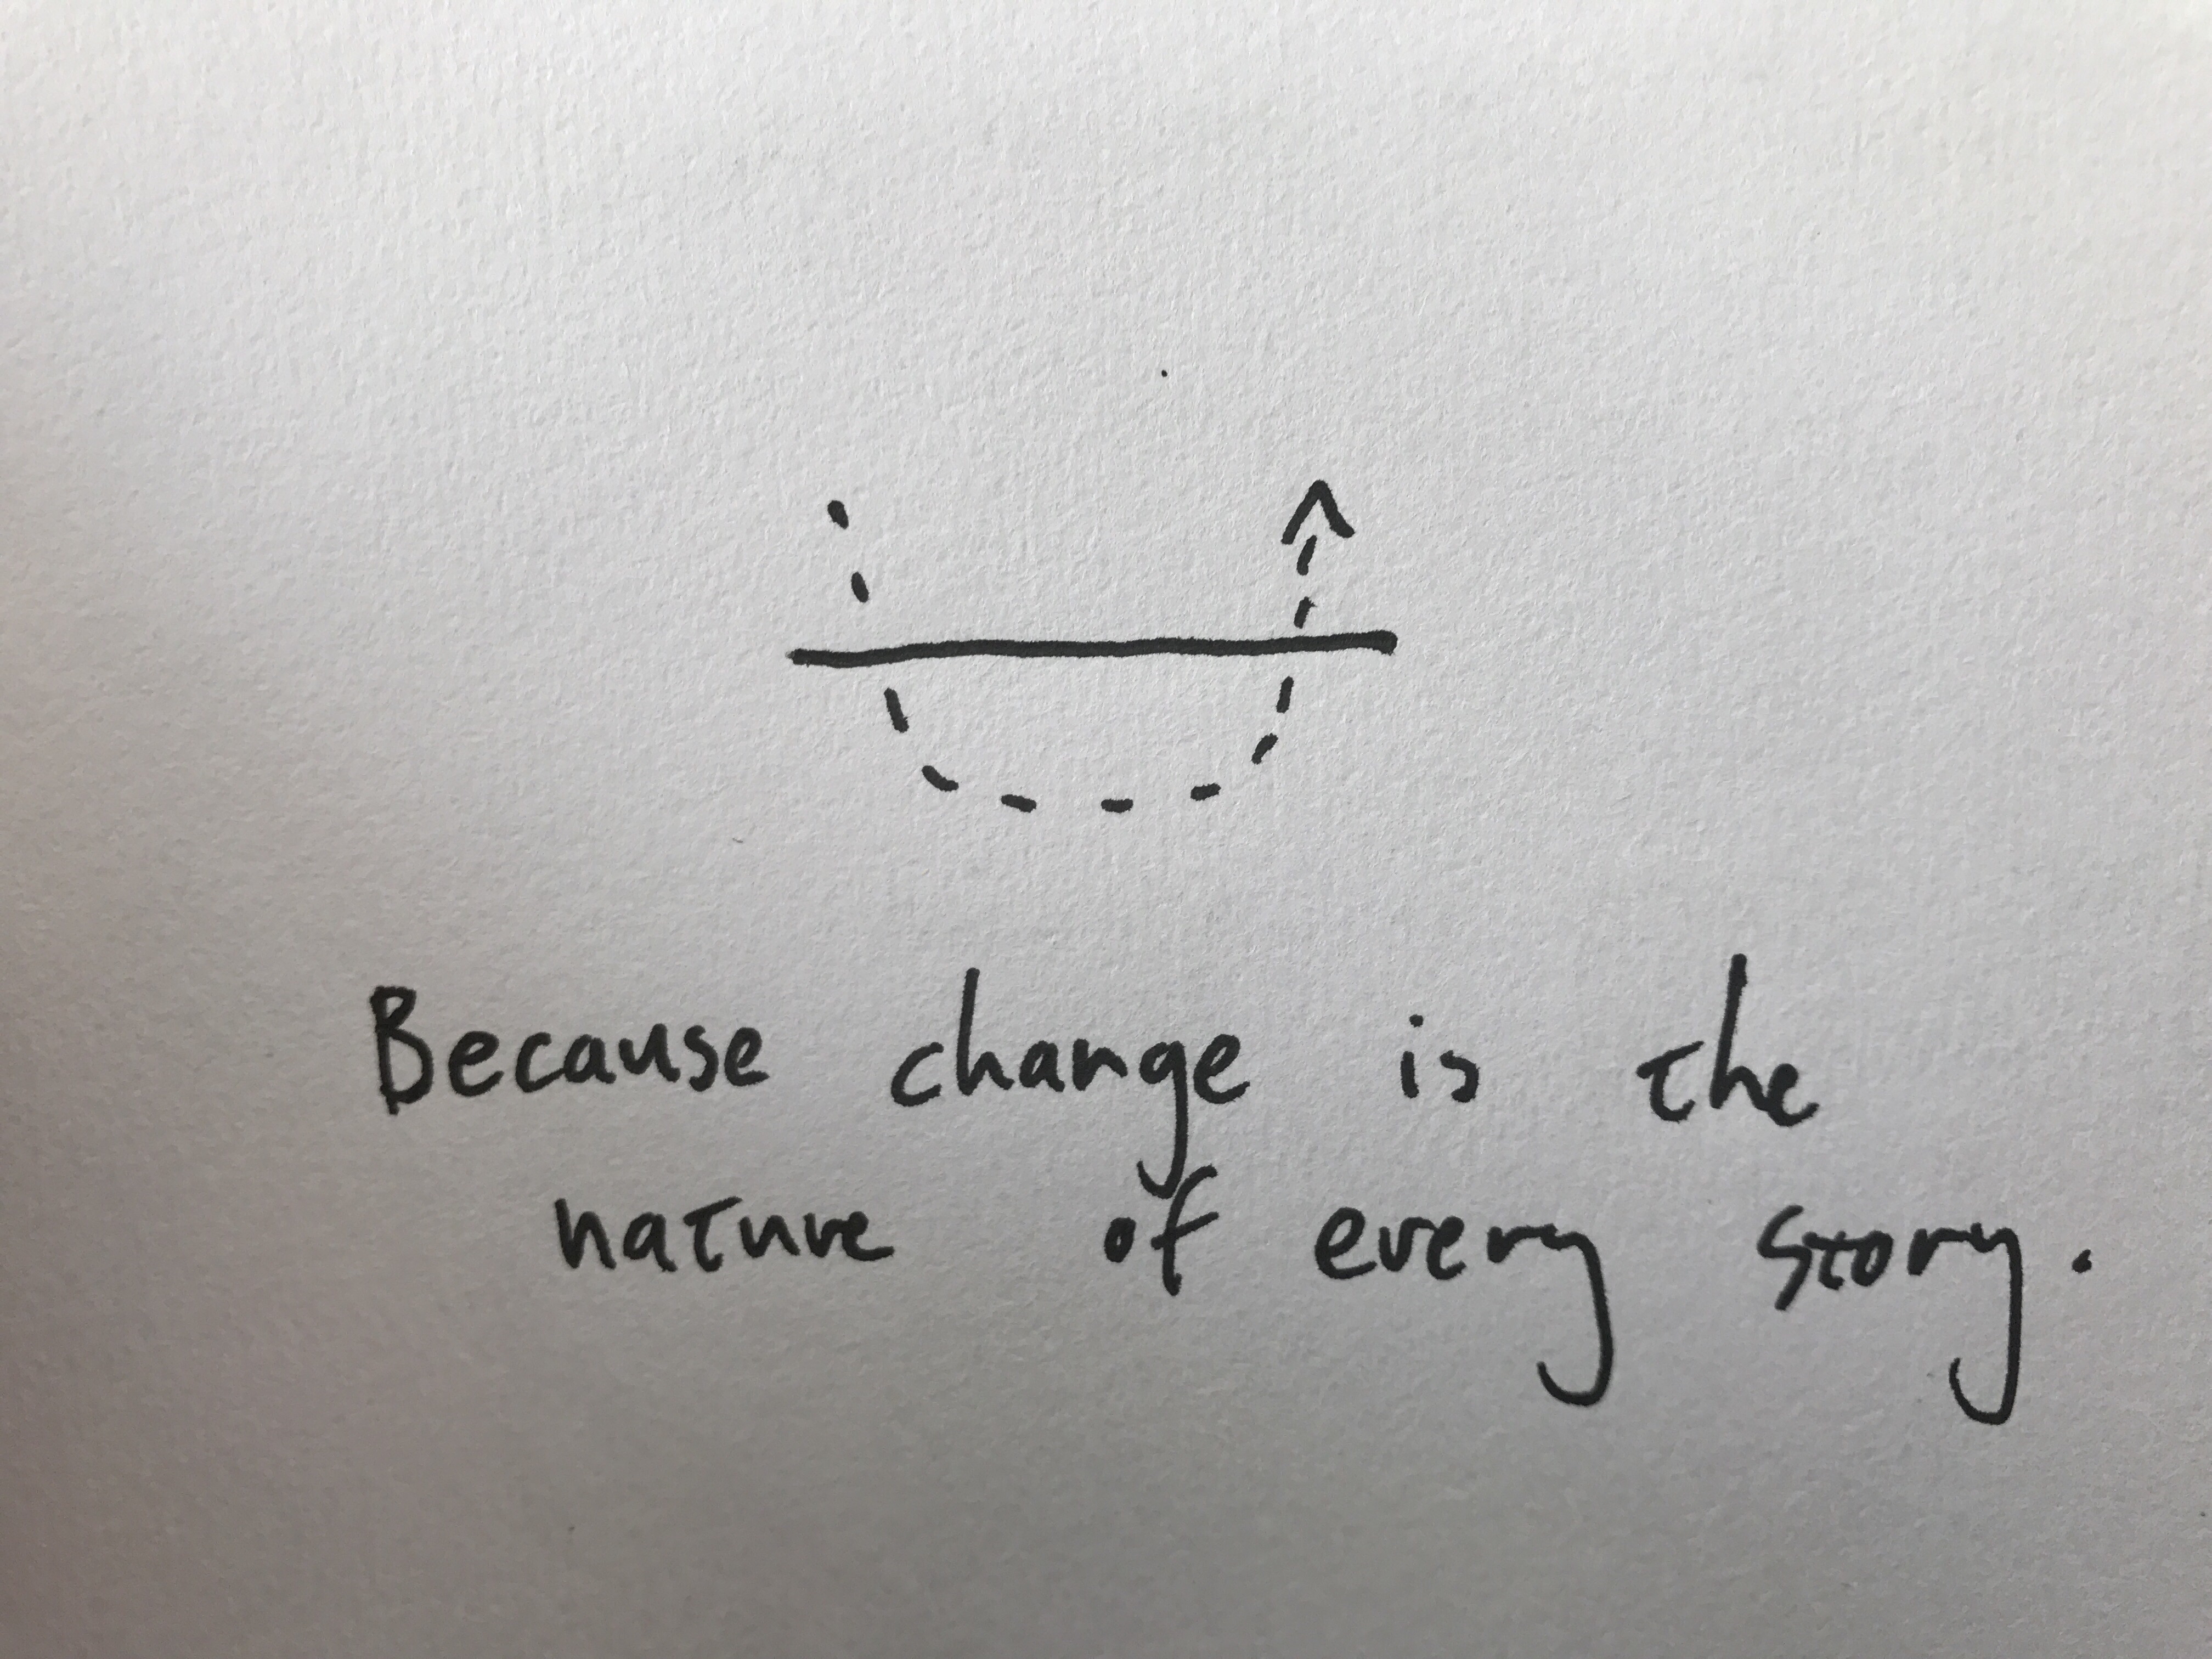 Because change is the
nature of every story.